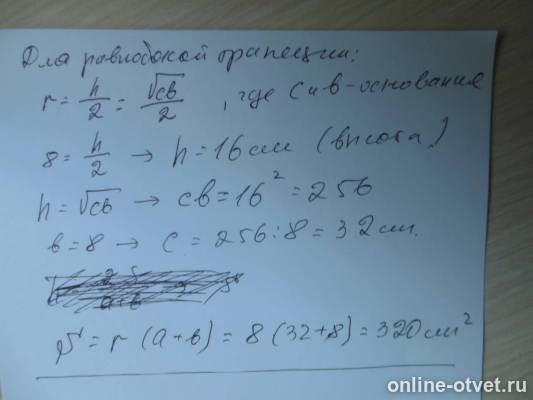 Для равнобокой трапеции:
r = h/2 = √cв/2, где с и в - основания
8 = h/2 → h = 16 см (высота)
h = √cв → св = 16² = 256
в = 8 → с = 256 : 8 = 32 см.
S = r (а + в) = 8 (32 + 8) = 320 см²
online-otvet.ru